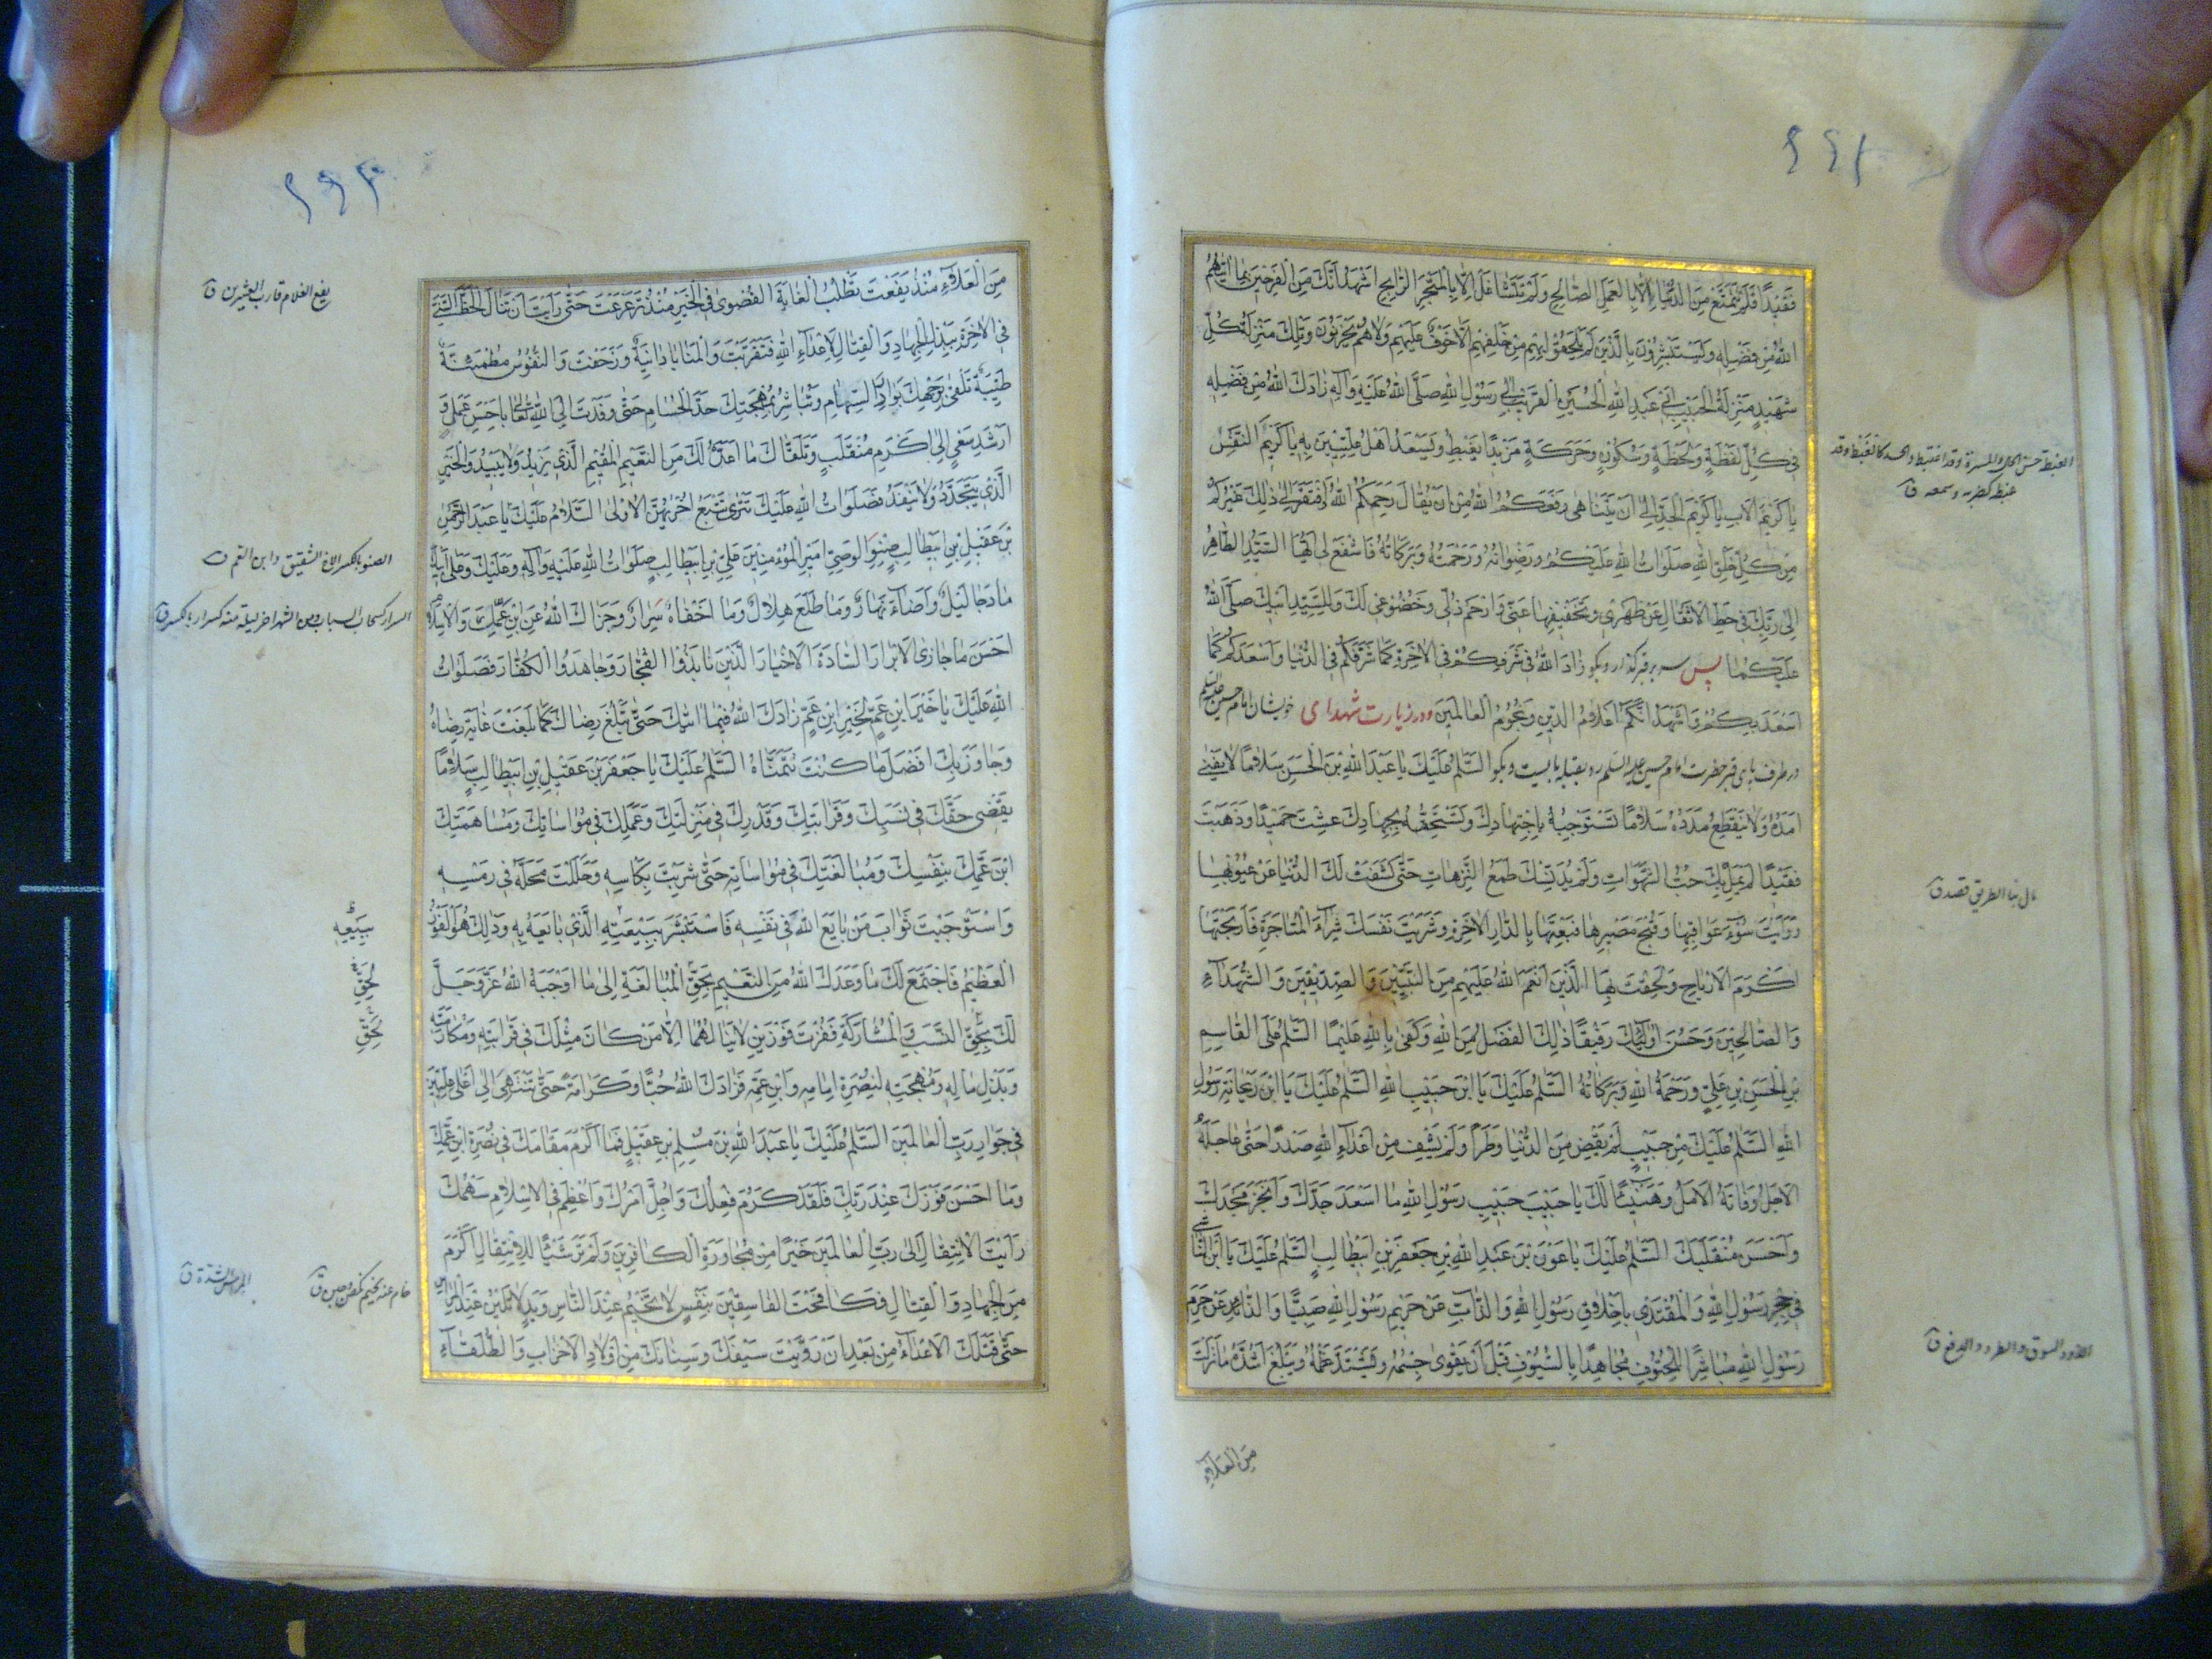 فَقيدًا فَلَمْ تَتَمَتَّعْ مِنَ الدُّنْيا اِلّا بِالْعَمَلِ الصّالِحِ وَلَمْ تَتَشاغَلْ اِلّا بِالْمَتْجَرِ الرّابِحِ اَشْهَدُ اَنَّكَ مِنَ الْفَرِحينَ بِما اٰتيٰهُمُ
اللهُ مِنْ فَضْلِهِ وَيَسْتَبْشِرُونَ بِالَّذينَ لَمْ يَلْحَقُوا بِهِمْ مِنْ خَلْفِهِمْ اَلّا خَوْفٌ عَلَيْهِمْ وَلا هُمْ يَحْزَنُونَ وَتِلْكَ مَنْزِلَةُ كُلِّ
شَهيدٍ مَنْزِلَةُ الْحَبيبِ اِلى عَبْدِ اللهِ الْحُسَيْنِ الْقَريبِ اِلى رَسُولِ اللهِ صَلَّى اللهُ عَلَيْهِ وَآلِهِ زادَكَ اللهُ مِنْ فَضْلِهِ
فى كُلِّ لَفْظَةٍ وَلَحْظَةٍ وَسُكُونٍ وَحَرَكَةٍ مَزيدًا يَغْبِطُ وَيَسْعَدُ اَهْلُ عِلِّيّينَ بِهِ يا كَريمَ النَّفْسِ
يا كَريمَ الْاَبِ يا كَريمَ الْجَدِّ اِلى اَنْ يَتَناهى رَفَعَكُمُ اللهُ مِنْ اَنْ يُقالَ رَحِمَكُمُ اللهُ وَافْتَقَرَ اِلى ذٰلِكَ غَيْرُكُمْ
مِنْ كُلِّ خَلْقِ اللهِ صَلَواتُ اللهِ عَلَيْكُمْ وَرِضْوانُهُ وَرَحْمَتُهُ وَبَرَكاتُهُ فَاشْفَعْ لى اَيُّهَا السَّيِّدُ الطّاهِرُ
اِلى رَبِّكَ فى حَطِّ الْاَثْقالِ عَنْ ظَهْرى وَتَخْفيفِها عَنّى وَارْحَمْ ذُلّى وَخُضُوعى لَكَ وَلِلسَّيِّدِ اَبيكَ صَلَّى اللهُ
عَلَيْكُما پس سر بر قبر گذار و بگو زادَ اللهُ فى شَرَفِكُمْ فِى الْاٰخِرَةِ كَما شَرَّفَكُمْ فِى الدُّنْيا وَاَسْعَدَكُمْ كَما
اَسْعَدَ بِكُمْ وَاَشْهَدُ اَنَّكُمْ اَعْلامُ الدّينِ وَنُجُومُ الْعالَمينَ و در زيارت شهداى خويشان امام حسين عليه السلم
در طرف پاى قبر حضرت امام حسين عليه السلم رو بقبله بايست و بگو اَلسَّلٰمُ عَلَيْكَ يا عَبْدَ اللهِ بْنَ الْحَسَنِ سَلامًا لا يَفْنى
اَمَدُهُ وَلا يَنْقَطِعُ مَدَدُهُ سَلامًا تَسْتَوْجِبُهُ بِاجْتِهادِكَ وَتَسْتَحِقُّهُ بِجِهادِكَ عِشْتَ حَميدًا وَذَهَبْتَ
فَقيدًا لَمْ يَمِلْ بِكَ حُبُّ الشَّهَواتِ وَلَمْ يُدَنِّسْكَ طَمَعُ النُّزُهاتِ حَتّى كَشَفَتْ لَكَ الدُّنْيا عَنْ عُيُوبِها
وَرَاَيْتَ سُوٓءَ عَواقِبِها وَقُبْحَ مَصيرِها فَبِعْتَها بِالدّارِ الْاٰخِرَةِ وَشَرَيْتَ نَفْسَكَ شِرٰآءَ الْمُتاجَرَةِ فَاَرْبَحْتَها
اَكْرَمَ الْاَرْباحِ وَلَحِقْتَ بِهَا الَّذينَ اَنْعَمَ اللهُ عَلَيْهِمْ مِنَ النَّبِيّينَ وَالصِّدّيقينَ وَالشُّهَدٰآءِ
وَالصّالِحينَ وَحَسُنَ اُولٰٓئِكَ رَفيقًا ذٰلِكَ الْفَضْلُ مِنَ اللهِ وَكَفى بِاللهِ عَليمًا اَلسَّلٰمُ عَلَى الْقاسِمِ
بْنِ الْحَسَنِ بْنِ عَلِىٍّ وَرَحْمَةُ اللهِ وَبَرَكاتُهُ اَلسَّلٰمُ عَلَيْكَ يَا ابْنَ حَبيبِ اللهِ اَلسَّلٰمُ عَلَيْكَ يَا ابْنَ رَيْحانَةِ رَسُولِ
اللهِ اَلسَّلٰمُ عَلَيْكَ مِنْ حَبيبٍ لَمْ يَقْضِ مِنَ الدُّنْيا وَطَرًا وَلَمْ يَشْفِ مِنْ اَعْدٰآءِ اللهِ صَدْرًا حَتّى عاجَلَهُ
الْاَجَلُ وَفاتَهُ الْاَمَلُ وَهَنيئًا لَكَ يا حَبيبَ حَبيبِ رَسُولِ اللهِ ما اَسْعَدَ جَدَّكَ وَاَفْخَرَ مَجْدَكَ
وَاَحْسَنَ مُنْقَلَبَكَ اَلسَّلٰمُ عَلَيْكَ يا عَوْنَ بْنَ عَبْدِ اللهِ بْنِ جَعْفَرِ بْنِ اَبيطالِبٍ اَلسَّلٰمُ عَلَيْكَ يَا ابْنَ النّاشى
فى حِجْرِ رَسُولِ اللهِ وَالْمُقْتَدى بِاَخْلاقِ رَسُولِ اللهِ وَالذّابِّ عَنْ حَريمِ رَسُولِ اللهِ صَبِيًّا وَالذّائِدِ عَنْ حَرَمِ
رَسُولِ اللهِ مُباشِرًا لِلْحُتُوفِ مُجاهِدًا بِالسُّيُوفِ قَبْلَ اَنْ يَقْوى جِسْمُهُ وَيَشْتَدَّ عَظْمُهُ وَيَبْلُغَ اَشُدَّهُ ما زِلْتَ
مِنَ الْعَلاءِ
الغبطة حسن الحال والمسرة وقد اغتبط والحسد كالغبط وقد
غبطه كضربه وسمعه ق
مال بنا الطريق قصد ق
الذود السوق والطرد والدفع ق
مِنَ الْعَلٰآءِ مُنْذُ يَفَعْتَ تَطْلُبُ الْغايَةَ الْقُصْوى فِى الْخَيْرِ مُنْذُ تَرَعْرَعْتَ حَتّى رَاَيْتَ اَنْ تَنالَ الْحَظَّ السَّنِىَّ
فِى الْاٰخِرَةِ بِبَذْلِ الْجِهادِ وَالْقِتالِ لِاَعْدٰآءِ اللهِ فَتَقَرَّبْتَ وَالْمَنايا دانِيَةٌ وَزَحَفْتَ وَالنُّفُوسُ مُطْمَئِنَّةٌ
طَيِّبَةٌ تَلْقى بِوَجْهِكَ بَوادِرَ السِّهامِ وَتُباشِرُ بِمُهْجَتِكَ حَدَّ الْحُسامِ حَتّى وَفَدْتَ اِلَى اللهِ تَعالى بِاَحْسَنِ عَمَلٍ وَ
اَرْشَدِ سَعْىٍ اِلى اَكْرَمِ مُنْقَلَبٍ وَتَلَقّاكَ ما اَعَدَّهُ لَكَ مِنَ النَّعيمِ الْمُقيمِ الَّذى يَزيدُ وَلا يَبيدُ وَالْخَيْرِ
الَّذى يَتَجَدَّدُ وَلا يَنْفَدُ فَصَلَواتُ اللهِ عَلَيْكَ تَتْرى تَتْبَعُ اُخْريٰهُنَّ الْاُولى اَلسَّلامُ عَلَيْكَ يا عَبْدَ الرَّحْمٰنِ
بْنَ عَقيلِ بْنِ اَبيطالِبٍ صِنْوِ الْوَصِىِّ اَميرِ الْمُؤْمِنينَ عَلِىِّ بْنِ اَبيطالِبٍ صَلَواتُ اللهِ عَلَيْهِ وَآلِهِ وَعَلَيْكَ وَعَلى اَبيكَ
ما دَجا لَيْلٌ وَاَضٰآءَ نَهارٌ وَما طَلَعَ هِلالٌ وَما اَخْفاهُ سَِرارٌ وَجَزاكَ اللهُ عَنِ ابْنِ عَمِّكَ وَالْاِسْلامِ
اَحْسَنَ ما جازَى الْاَبْرارَ السّادَةَ الْاَخْيارَ الَّذينَ نابَذُوا الْفُجّارَ وَجاهَدُوا الْكُفّارَ فَصَلَواتُ
اللهِ عَلَيْكَ يا خَيْرَ ابْنِ عَمٍّ لِخَيْرِ ابْنِ عَمٍّ زادَكَ اللهُ فيما اٰتيٰكَ حَتّى تَبْلُغَ رِضاكَ كَما بَلَغْتَ غايَةَ رِضاهُ
وَجاوَزَ بِكَ اَفْضَلَ ما كُنْتَ تَتَمَنّاهُ اَلسَّلٰمُ عَلَيْكَ يا جَعْفَرَ بْنَ عَقيلِ بْنِ اَبيطالِبٍ سَلامًا
يَقْضى حَقَّكَ فى نَسَبِكَ وَقَرابَتِكَ وَقَدْرِكَ فى مَنْزِلَتِكَ وَعَمَلِكَ فى مُواساتِكَ وَمُساهَمَتِكَ
ابْنَ عَمِّكَ بِنَفْسِكَ وَمُبالَغَتِكَ فى مُواساتِهِ حَتّى شَرِبْتَ بِكَاْسِهِ وَحَلَلْتَ مَحَلَّهُ فى رَمْسِهِ
وَاسْتَوْجَبْتَ ثَوابَ مَنْ بايَعَ اللهَ فى نَفْسِهِ فَاسْتَبْشَرَ بِبَيْعَتِهِ الَّذى بايَعَهُ بِهِ وَذٰلِكَ هُوَ الْفَوْزُ
الْعَظيمُ فَاجْتَمَعَ لَكَ ما وَعَدَكَ اللهُ مِنَ النَّعيمِ بِحَقِّ الْمُبالَغَةِ اِلى ما اَوْجَبَهُ اللهُ عَزَّ وَجَلَّ
لَكَ بِحَقِّ النَّسَبِ وَالْمُشارَكَةِ فَفُزْتَ فَوْزَيْنِ لا يَنالُهُما اِلّا مَنْ كانَ مِثْلَكَ فى قَرابَتِهِ وَمَكارِمِهِ
وَبَذْلِ مالِهِ وَمُهْجَتِهِ لِنُصْرَةِ اِمامِهِ وَابْنِ عَمِّهِ فَزادَكَ اللهُ حُبًّا وَكَرامَةً حَتّى تَنْتَهِىَ اِلى اَعْلى عِلِّيّينَ
فى جِوارِ رَبِّ الْعالَمينَ اَلسَّلٰمُ عَلَيْكَ يا عَبْدَ اللهِ بْنَ مُسْلِمِ بْنِ عَقيلٍ فَما اَكْرَمَ مَقامَكَ فى نُصْرَةِ ابْنِ عَمِّكَ
وَما اَحْسَنَ فَوْزَكَ عِنْدَ رَبِّكَ فَلَقَدْ كَرُمَ فِعْلُكَ وَاَجَلَّ اَمْرُكَ وَاَعْظَمَ فِى الْاِسْلامِ سَهْمُكَ
رَاَيْتَ الْاِنْتِقالَ اِلى رَبِّ الْعالَمينَ خَيْرًا مِنْ مُجاوَرَةِ الْكافِرينَ وَلَمْ تَرَ شَيْئًا لِلْاِنْتِقالِ اَكْرَمَ
مِنَ الْجِهادِ وَالْقِتالِ فَكافَحْتَ الْفاسِقينَ بِنَفْسٍ لا تَخيمُ عِنْدَ النّاسِ وَيَدٍ لا تَلينُ عِنْدَ الْمِراسِ
حَتّى قَتَلَكَ الْاَعْدٰآءُ مِنْ بَعْدِ اَنْ رَوَّيْتَ سَيْفَكَ وَسِنانَكَ مِنْ اَوْلادِ الْاَحْزابِ وَالطُّلَقٰآءِ
يفع الغلام قارب العشرين ق
الصنو بالكسر الاخ الشقيق وابن العم ق
بِبَيْعِهِ
لِحَقِّ
لِحَقِّ
المراس الشدة ق